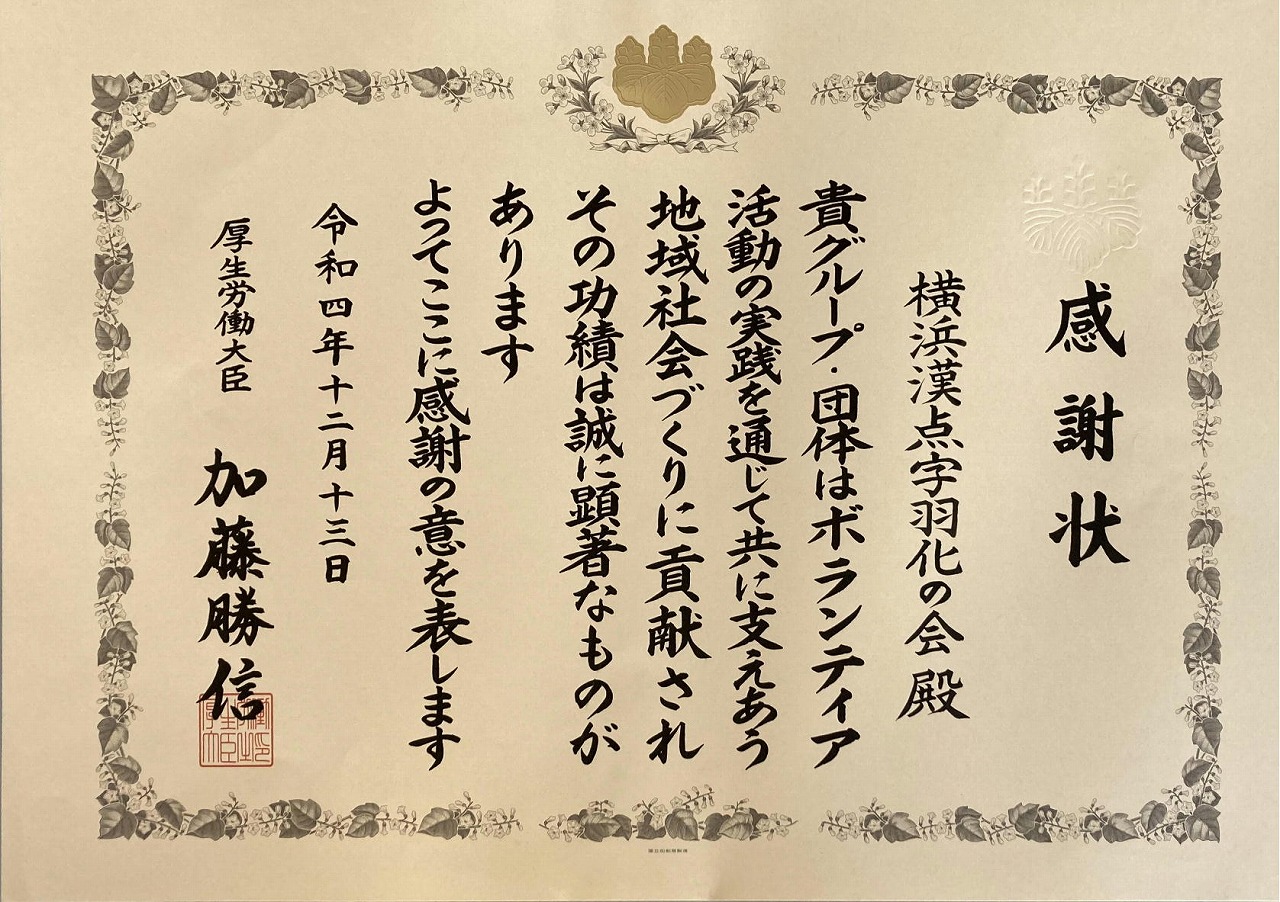 感謝状
横浜漢点字羽化の会 殿
貴グループ・団体はボランティア
活動の実践を通じて共に支えあう
地域社会づくりに貢献され
その功績は誠に顕著なものが
あります
よってここに感謝の意を表します
令和四年十二月十三日
厚生労働大臣 加藤勝信